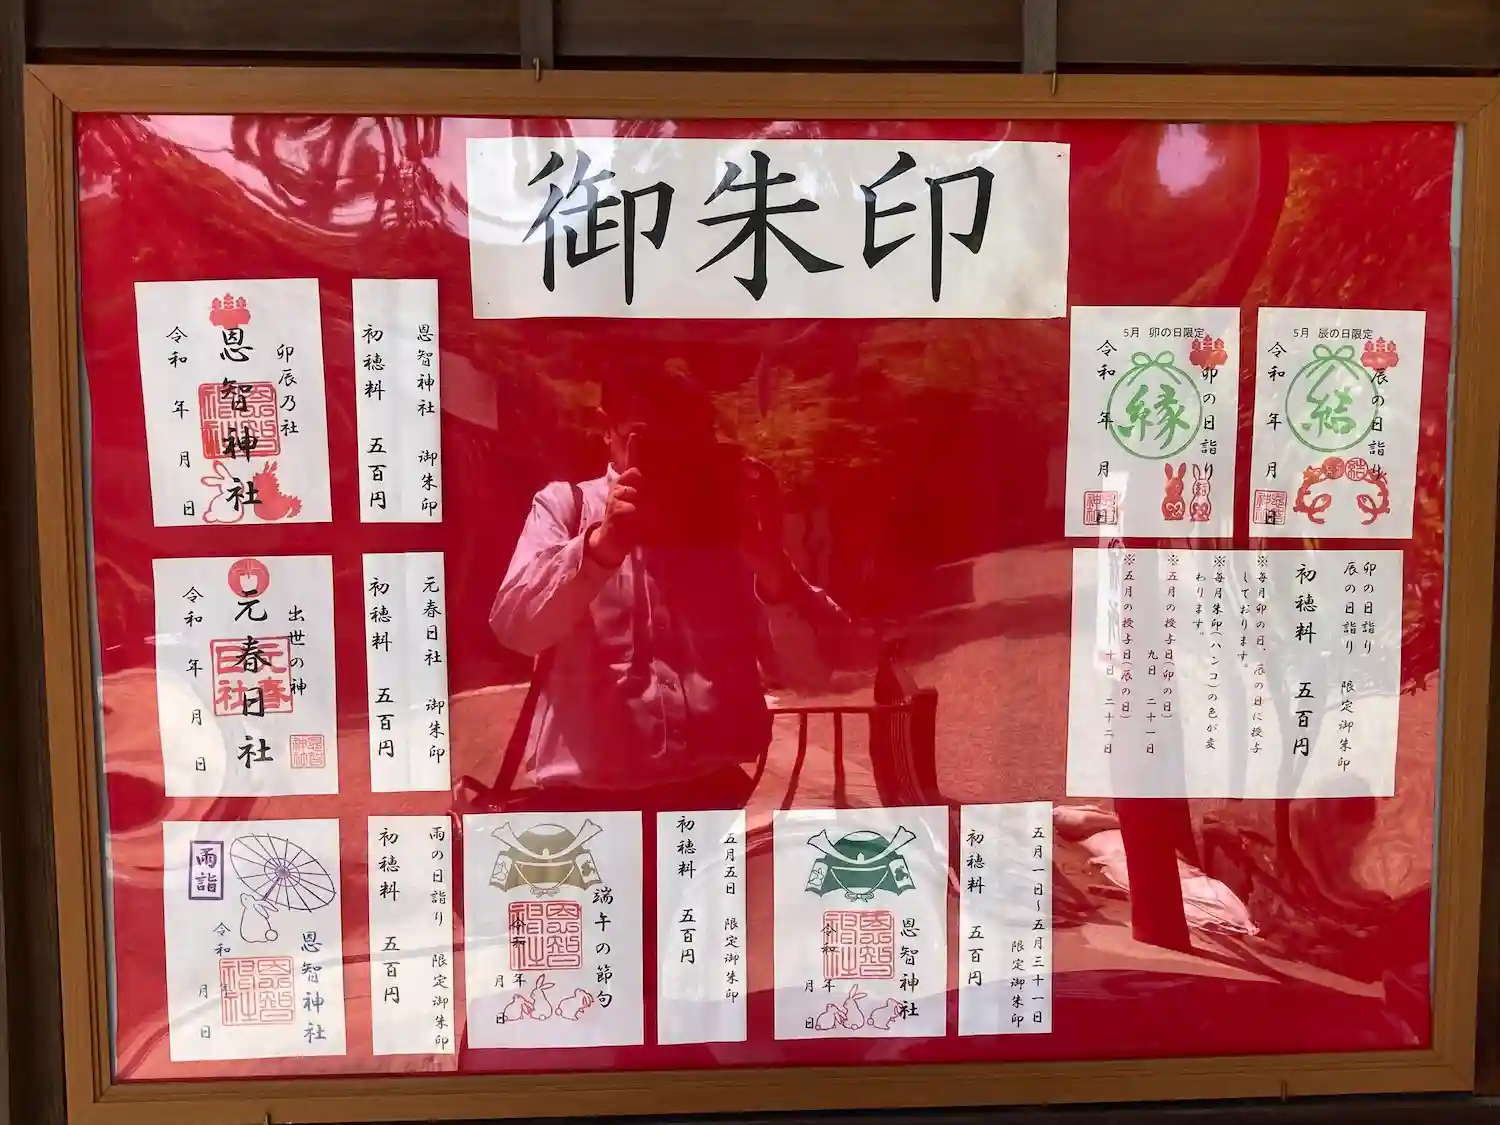 御朱印
卯辰乃社
恩智神社
令和 年 月 日
恩智神社 御朱印
初穂料 五百円
出世の神
元春日社
令和 年 月 日
元春日社 御朱印
初穂料 五百円
雨詣
恩智神社
令和 年 月 日
雨の日詣り 限定御朱印
初穂料 五百円
端午の節句
令和 年 月 日
五月五日 限定御朱印
初穂料 五百円
恩智神社
令和 年 月 日
五月一日～五月三十一日
限定御朱印
初穂料 五百円
5月 卯の日限定
卯の日詣り
縁
令和 年 月 日
5月 辰の日限定
辰の日詣り
結
令和 年 月 日
卯の日詣り
辰の日詣り 限定御朱印
初穂料 五百円
※毎月卯の日、辰の日に授与
しております。
※毎月朱印(ハンコ)の色が変
わります。
※五月の授与日(卯の日)
九日 二十一日
※五月の授与日(辰の日)
十日 二十二日